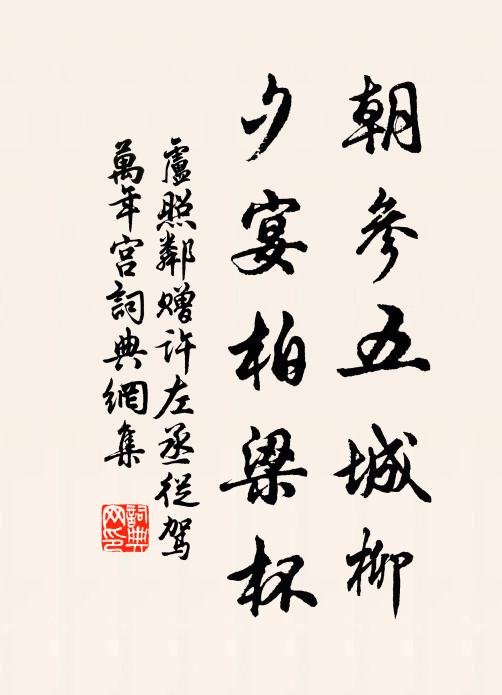 朝參五城柳
夕宴柏梁杯
盧照鄰贈許左丞從駕
萬年宮詞典網集
詞典
网印